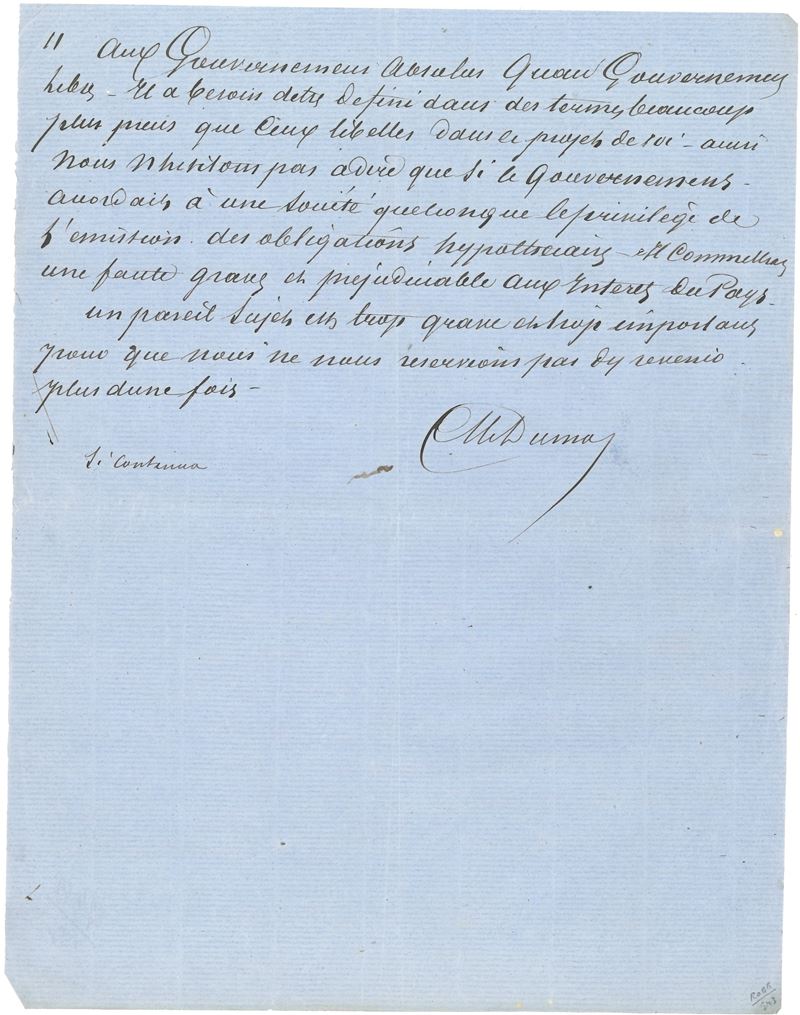 11 aux Gouvernements Absolus Qu'aux Gouvernements
Libres – Il a besoin detre Defini dans des termes beaucoup
plus precis que Ceux libelles dans le projet de loi – aussi
Nous N'hesitons pas a dire que Si le Gouvernement
accordait à une Société quelconque le privilège de
l'emission des obligations hypothecaires – Il Commettrait
une faute grave et prejudiciable aux Interets Du Pays –
un pareil Sujet est trop grave et trop important
pour que nous ne nous reservions pas dy revenir
plus dune fois –
Alex Dumas
Si continua